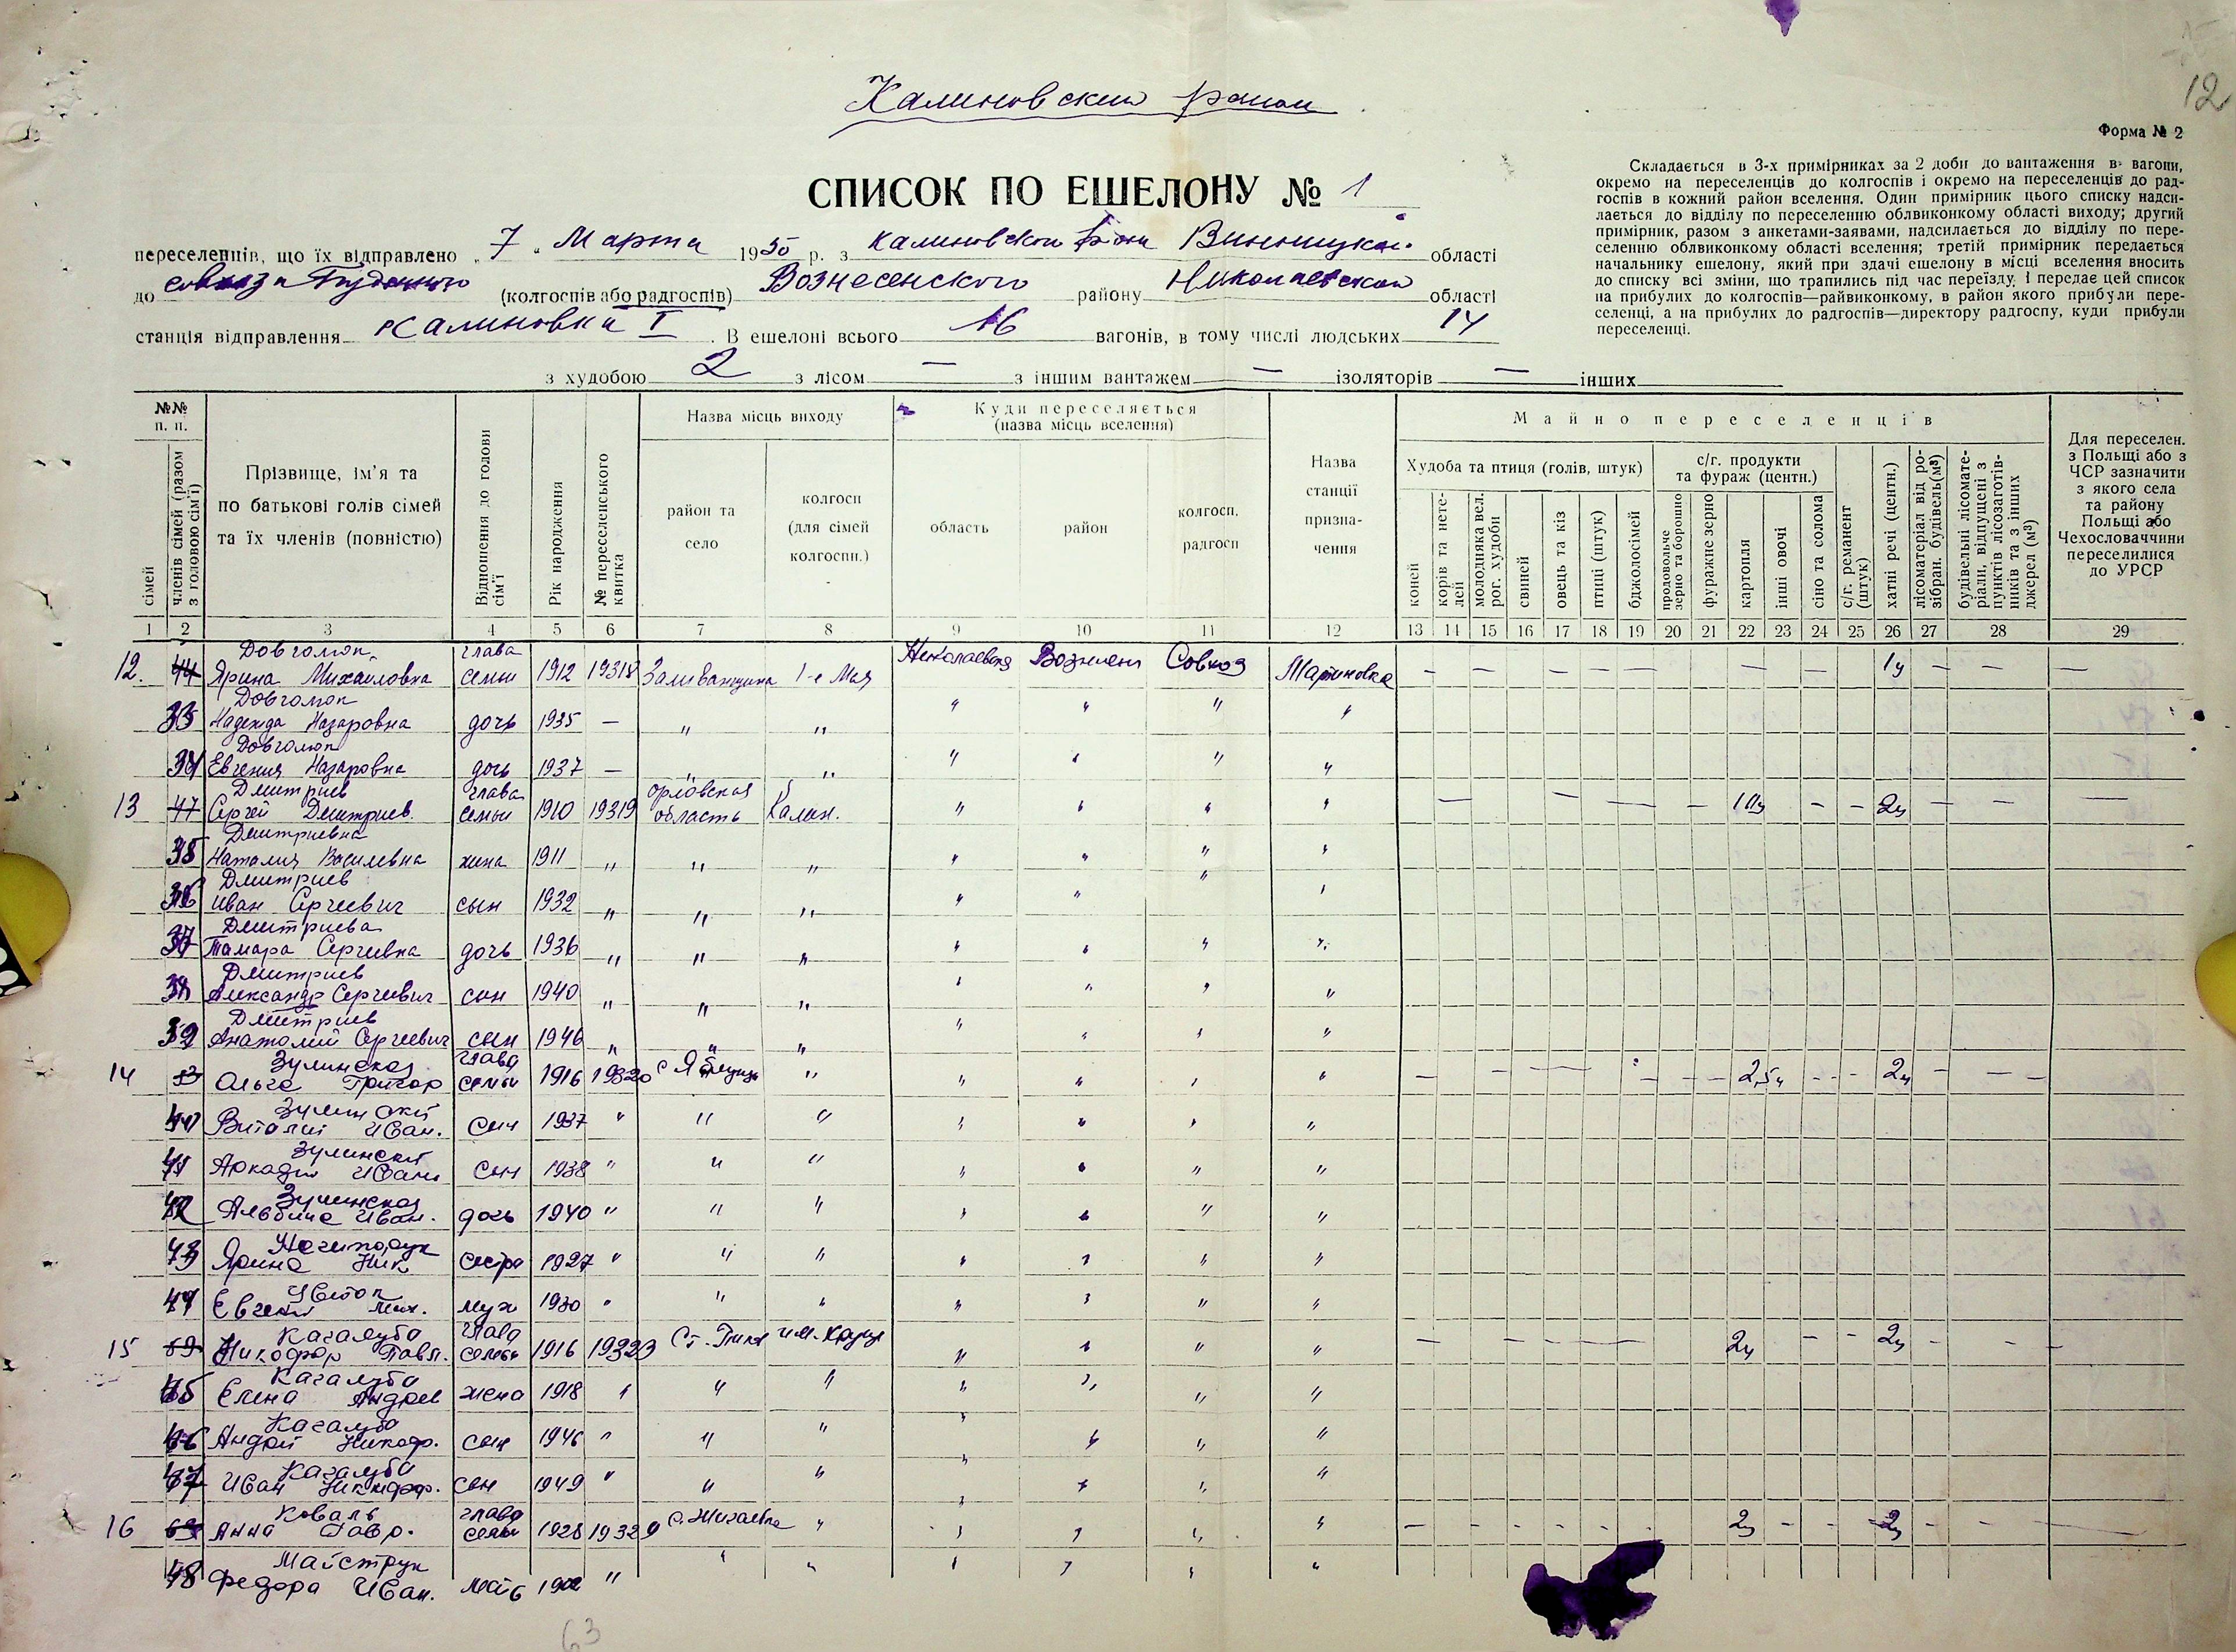 12
Калиновский район
Форма № 2
СПИСОК ПО ЕШЕЛОНУ № 1
Складається в 3-х примірниках за 2 доби до вантаження в вагони,
окремо на переселенців до колгоспів і окремо на переселенців до рад-
госпів в кожний район вселення. Один примірник цього списку надси-
лається до відділу по переселенню облвиконкому області виходу; другий
примірник, разом з анкетами-заявами, надсилається до відділу по пере-
селенню облвиконкому області вселення; третій примірник передається
начальнику ешелону, який при здачі ешелону в місці вселення вносить
до списку всі зміни, що трапились під час переїзду, і передає цей список
на прибулих до колгоспів—райвиконкому, в район якого прибули пере-
селенці, а на прибулих до радгоспів—директору радгоспу, куди прибули
переселенці.
переселенців, що їх відправлено „ 7 " Марта 1950 р. з Калиновского р-она Винницкой області
до совхоза Буденного (колгоспів або радгоспів) Вознесенского району Николаевской області
станція відправлення Калиновка I. В ешелоні всього 16 вагонів, в тому числі людських 14
з худобою 2 з лісом — з іншим вантажем — ізоляторів — інших
№№ п. п.
сімей
членів сімей (разом з головою сім'ї)
Прізвище, ім'я та по батькові голів сімей та їх членів (повністю)
Відношення до голови сім'ї
Рік народження
№ переселенського квитка
Назва місць виходу
район та село
колгосп (для сімей колгоспн.)
Куди переселяється (назва місць вселення)
область
район
колгосп, радгосп
Назва станції призна-чення
Майно переселенців
Худоба та птиця (голів, штук)
коней
корів та нете-лей
молодняка вел. рог. худоби
свиней
овець та кіз
птиці (штук)
бджолосімей
с/г. продукти та фураж (центн.)
продовольче зерно та борошно
фуражне зерно
картопля
інші овочі
сіно та солома
с/г. реманент (штук)
хатні речі (центн.)
лісоматеріал від ро-зібран. будівель (м³)
будівельні лісомате-ріали, відпущені з пунктів лісозаготів-ників та з інших джерел (м³)
Для переселен. з Польщі або з ЧСР зазначити з якого села та району Польщі або Чехословаччини переселилися до УРСР
1 2 3 4 5 6 7 8 9 10 11 12 13 14 15 16 17 18 19 20 21 22 23 24 25 26 27 28 29
12. 44 Довголюк Ярина Михайловна глава семьи 1912 19318 Заливанщина 1-е Мая Николаевска Вознесен Совхоз Мартиновка — — — — — — 1ц — — —
33 Довголюк Надежда Назаровна дочь 1935 — " " " " " "
34 Довголюк Евгения Назаровна дочь 1937 — " " " " " "
13 47 Дмитриев Сергей Дмитриев глава семьи 1910 19319 орловская область Калин. " " " " — — — — 10ц - - 2ц — — —
35 Дмитриевна Наталия Василевна жена 1911 " " " " " " "
36 Дмитриев Иван Сергеевич сын 1932 " " " " " " "
37 Дмитриева Тамара Сергеевна дочь 1936 " " " " " " "
38 Дмитриев Александр Сергеевич сын 1940 " " " " " " "
39 Дмитриев Анатолий Сергеевич сын 1946 " " " " " " "
14 53 Зулинская Ольга Григор глава семьи 1916 19320 " " " " " — - — - — — 2,5ц - - - 2ц — — —
40 Зулинский Виталий Иван. сын 1937 " " " " " " "
41 Зулинский Аркадий Иван сын 1938 " " " " " " "
42 Зулинская Альбина Иван. дочь 1940 " " " " " " "
43 Ничипорук Ярина Ник. сестра 1927 " " " " " " "
44 Евгений Мих. муж 1930 " " " " " " "
15 59 Качалуба Никофор Павл. глава семьи 1916 19323 " " " " — — — — 2ц - - 2ц - - -
45 Качалуба Елена Андреев жена 1918 " " " " " " "
46 Качалуба Андрей Никоф. сын 1946 " " " " " " "
47 Качалуба Иван Никифор. сын 1949 " " " " " " "
16 Коваль Анна Гавр. глава семьи 1928 19329 " " " " " — - - - - - 2ц - - - 2ц - - -
48 Майструк Федора Иван. мать 1902 " " " " " " "
63